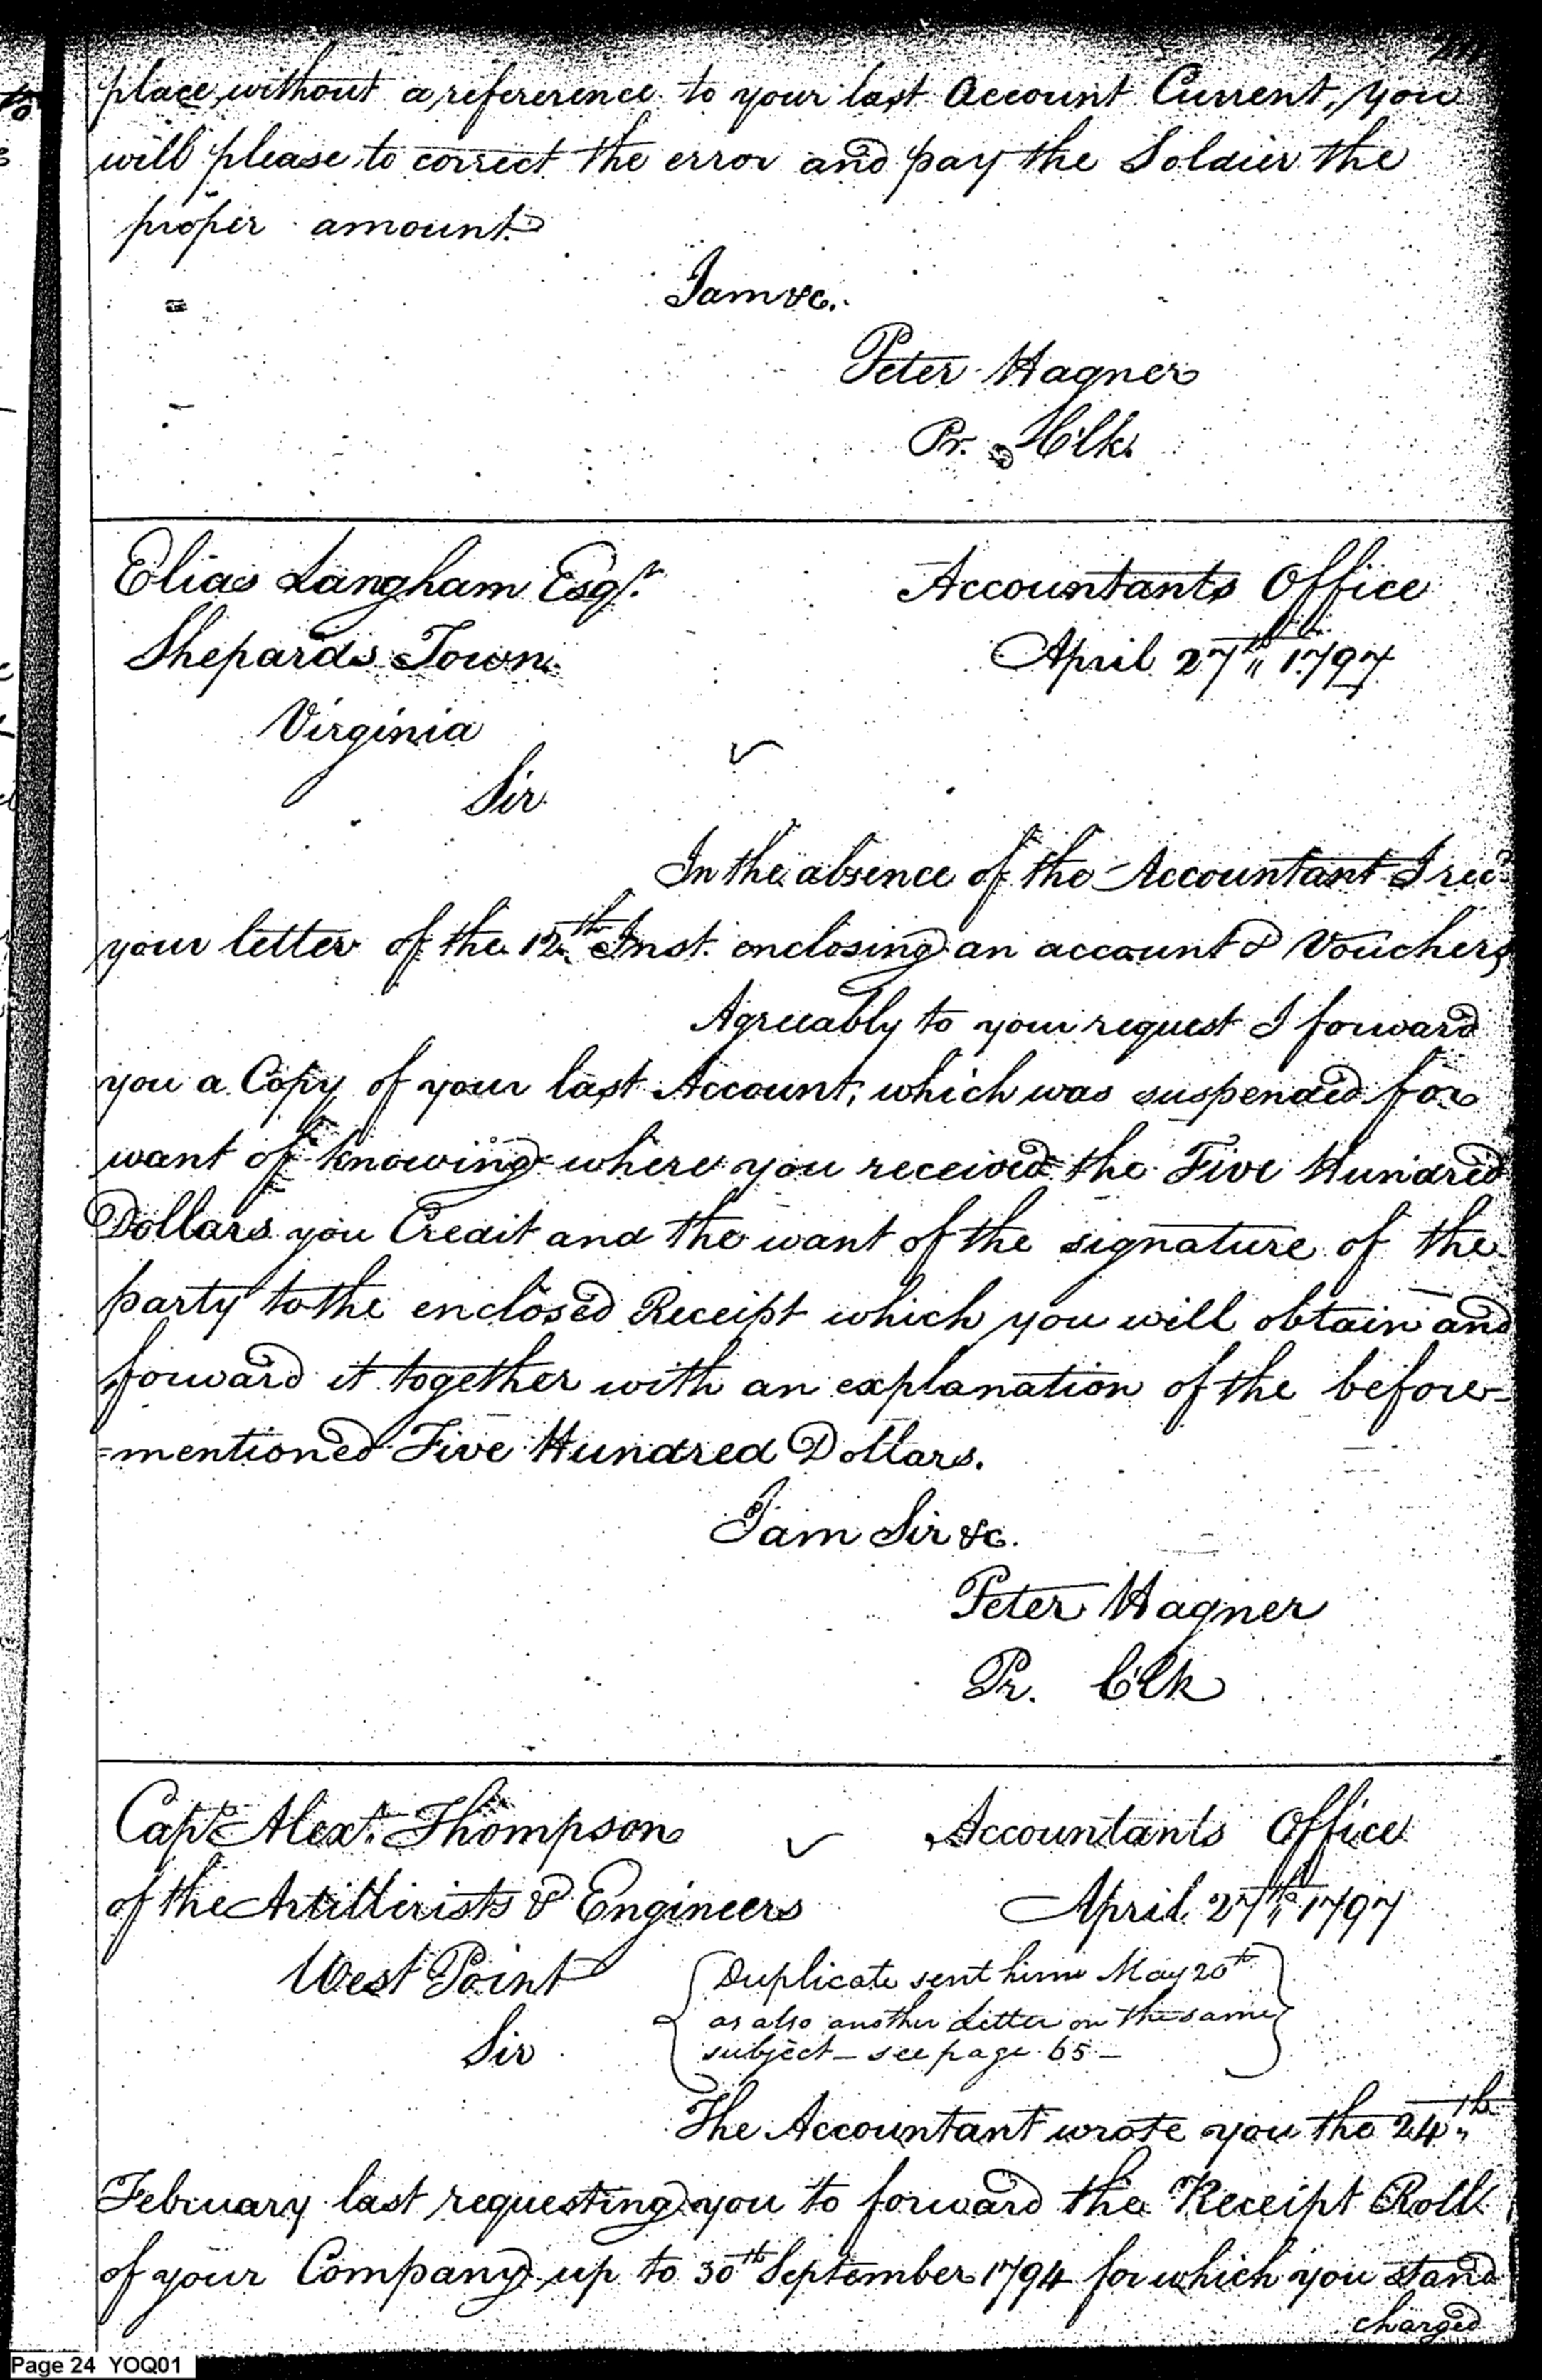 place, without a refererence to your last Account Current, you
will please to correct the error and pay the Soldier the
proper amount.
I am &c.
Peter Hagner
Pr. Clk.
Elias Langham Esqr.
Accountants Office
Shepards Town
April 27th 1797
Virginia
Sir
In the absence of the Accountant I recd.
your letter of the 12th Inst. enclosing an account & Vouchers
Agreeably to your request I forward
you a Copy of your last Account, which was suspended for
want of knowing where you received the Five Hundred
Dollars you Credit and the want of the signature of the
party to the enclosed Receipt which you will obtain and
forward it together with an explanation of the before-
=mentioned Five Hundred Dollars.
I am Sir &c.
Peter Hagner
Pr. Clk
Capt. Alexr. Thompson
Accountants Office
of the Artillerists & Engineers
April 27th 1797
West Point
Duplicate sent him May 20th
as also another Letter on the same
subject – see page 65 –
Sir
The Accountant wrote you the 24th
February last requesting you to forward the Receipt Roll
of your Company up to 30th September 1794 for which you stand
charged
Page 24 YOQ01